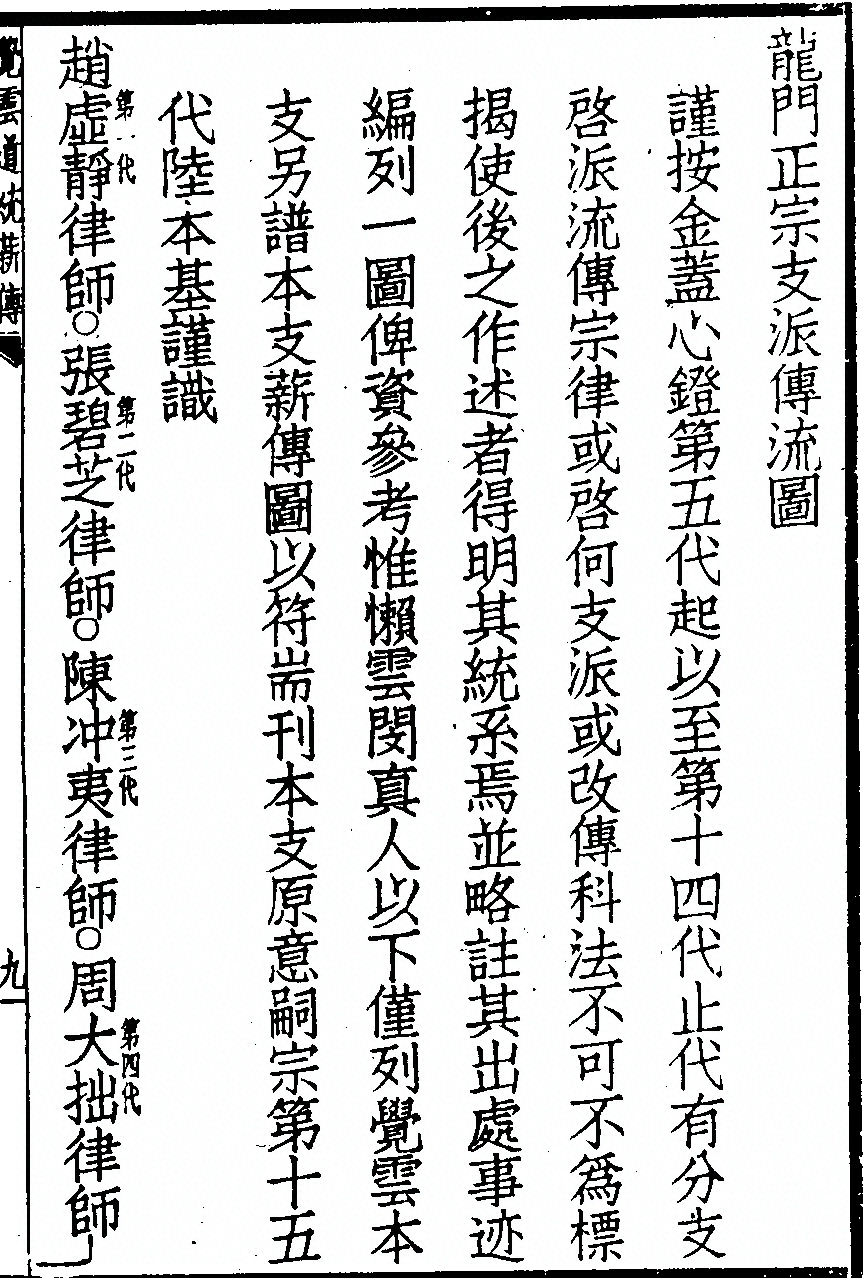 龍門正宗支派傳流圖
謹按金蓋心鐙第五代起以至第十四代止代有分支
啓派流傳宗律或啓何支派或改傳科法不可不爲標
揭使後之作述者得明其統系焉並略註其出處事迹
編列一圖俾資參考惟懶雲閔真人以下僅列覺雲本
支另譜本支薪傳圖以符耑刊本支原意嗣宗第十五
代陸本基謹識
趙虛靜律師第一代○張碧芝律師第二代○陳冲夷律師第三代○周大拙律師第四代
覺雲道統薪傳
九